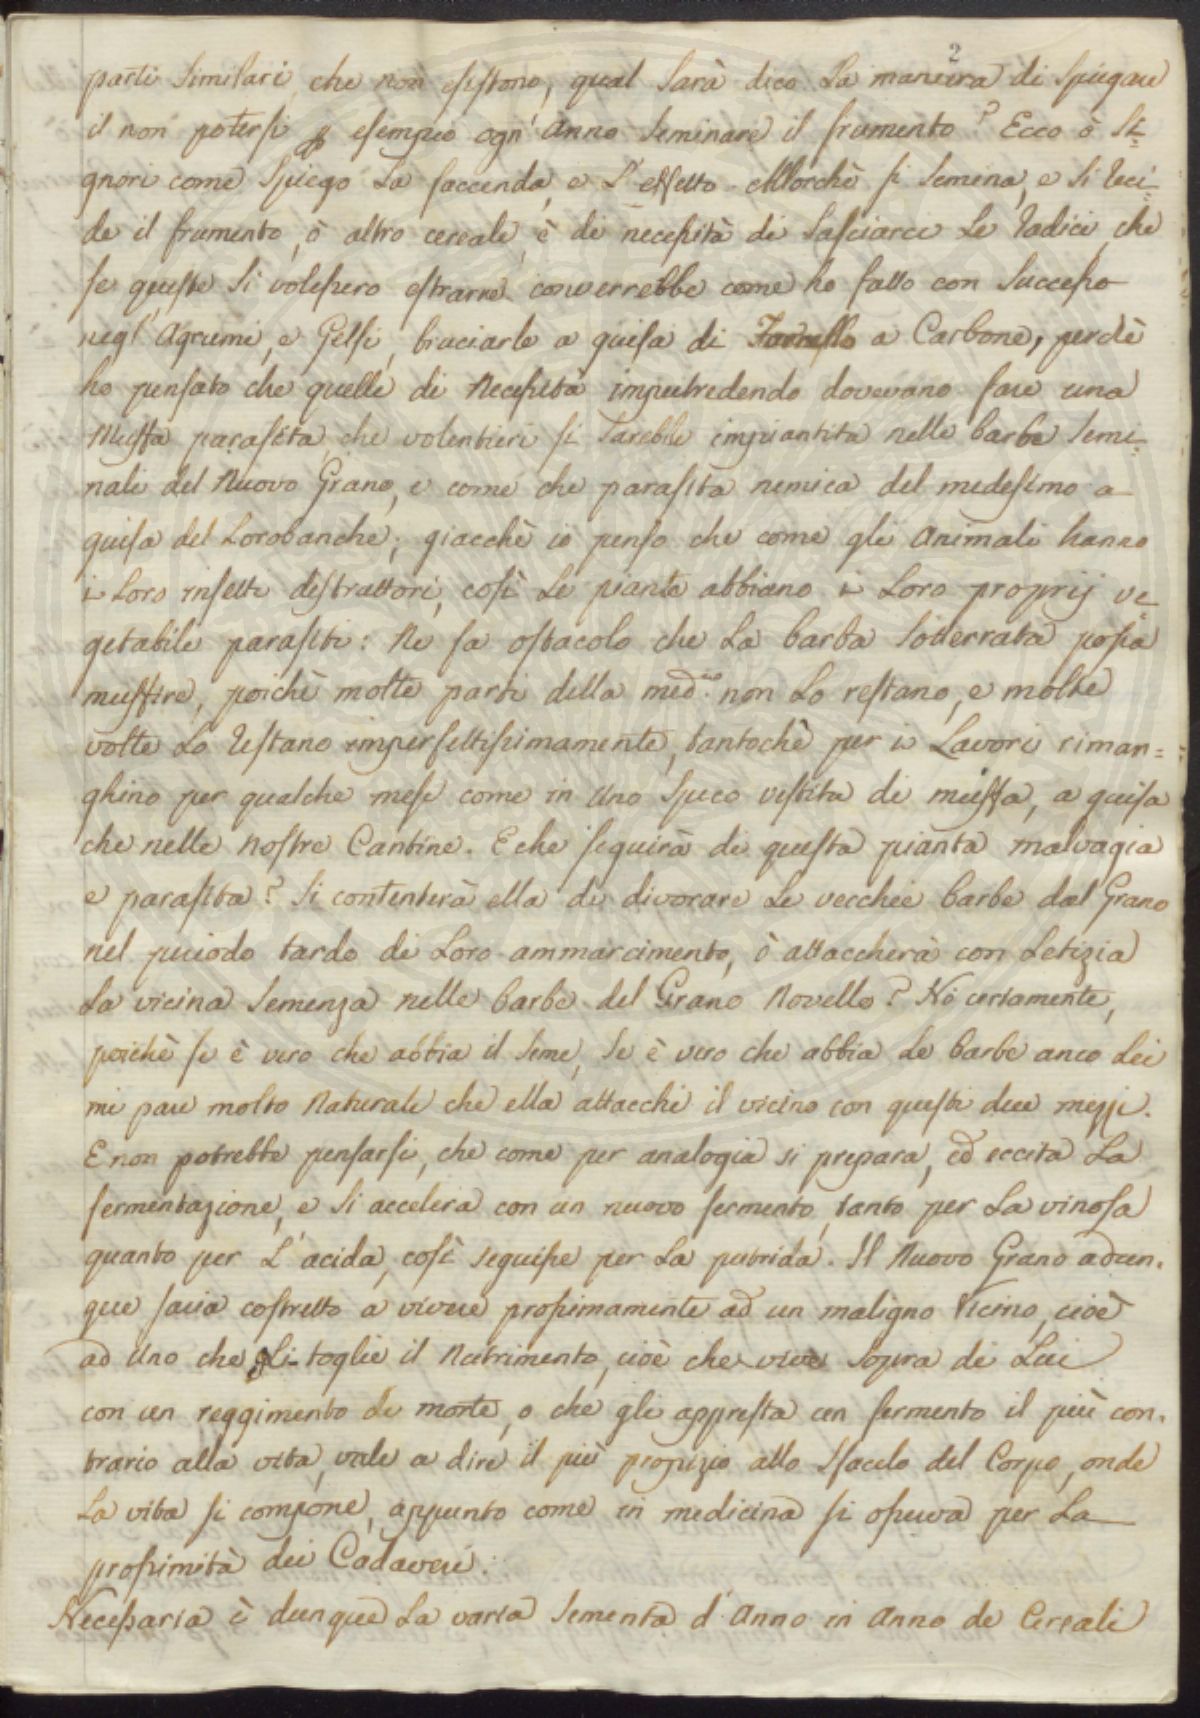 2
parti similari che non esistono, qual sarà dico la maniera di spiegare
il non potersi p esempio ogn' anno seminare il frumento? Ecco ò Si-
gnori come spiego la faccenda, e l' effetto. Allorchè si semina, e si reci-
de il frumento, ò altro cereale, è di necessità di lasciarci le radici, che
se queste si volessero estrarre converrebbe come ho fatto con successo
negl' Agrumi, e Gelsi, bruciarle a guisa di a Carbone, perchè
ho pensato che quelle di Necessità imputredendo dovevano fare una
Muffa parasita, che volentieri si sarebbe impiantita nelle barbe semi-
nali del Nuovo Grano, e come che parasita nemica del medesimo a
guisa del Lorobanche; giacchè io penso che come gli Animali hanno
i loro insetti distruttori, così le piante abbiano i loro proprij ve-
getabili parasiti: Ne fa ostacolo che la barba sotterrata possa
muffire, poichè molte parti della med.ma non lo restano, e molte
volte lo restano imperfettissimamente, tantochè per i Lavori riman=
ghino per qualche mese come in uno speco vestita di muffa, a guisa
che nelle nostre Cantine. E che seguirà di questa pianta malvagia
e parasita? Si contenterà ella di divorare le vecchie barbe del Grano
nel periodo tardo di loro ammarcimento, ò attaccherà con letizia
la vicina semenza nelle barbe del Grano Novello? Nò certamente,
poichè se è vero che abbia il seme, se è vero che abbia le barbe anco lei
mi pare molto Naturale che ella attacchi il vicino con questi due mezzi.
E non potrebbe pensarsi, che come per analogia si prepara, ed eccita la
fermentazione, e si accelera con un nuovo fermento, tanto per la vinosa
quanto per l' acida, così seguisse per la putrida. Il Nuovo Grano adun-
que saria costretto a vivere prossimamente ad un maligno Vicino, cioè
ad uno che gli toglie il Nutrimento, cioè che vive sopra di Lui
con un reggimento di morte, o che gli appresta un fermento il più con-
trario alla vita, vale a dire il più propizio allo sfacelo del Corpo, onde
la vita si compone, appunto come in medicina si osserva per la
prossimità dei Cadaveri.
Necessaria è dunque la varia sementa d' Anno in Anno de Cereali